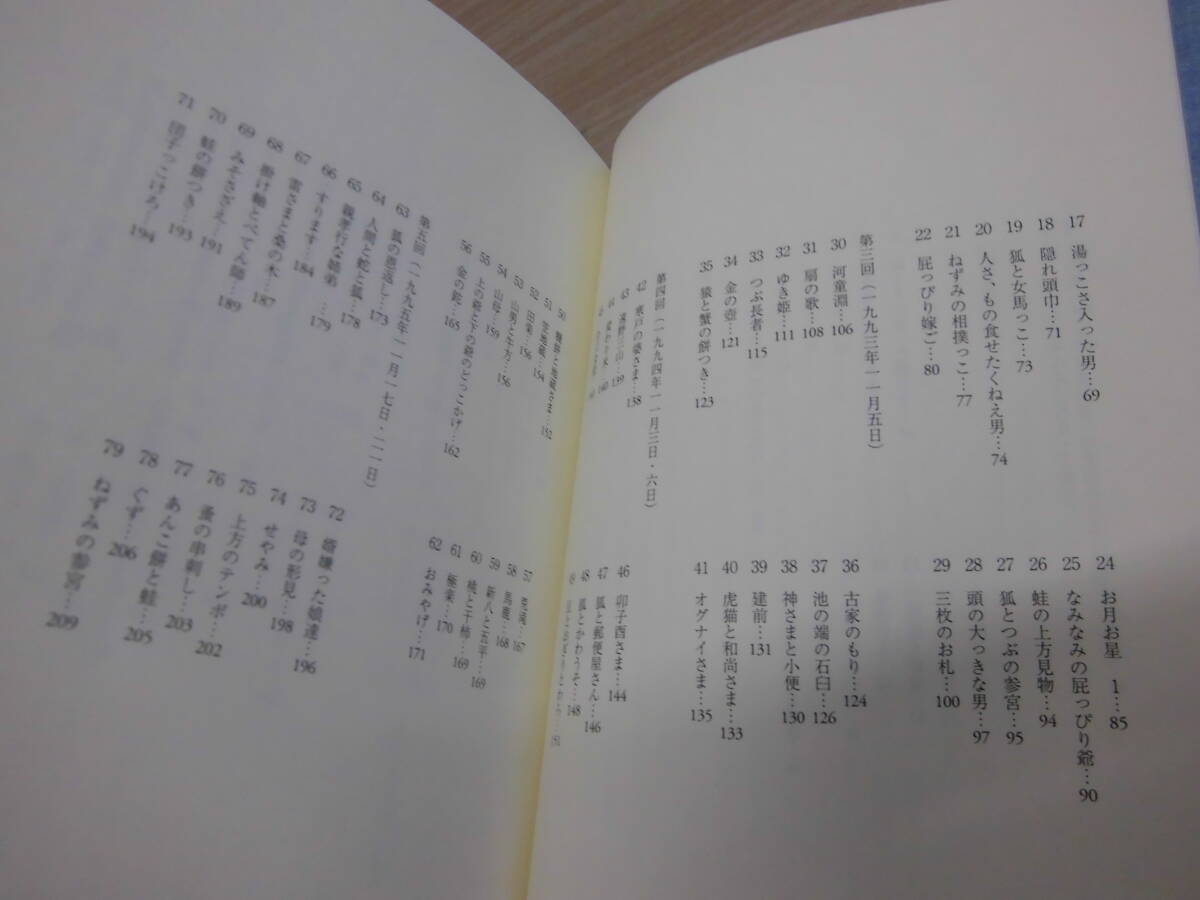 17 湯っこさ入った男…69
18 隠れ頭巾…71
19 狐と女馬っこ…73
20 人さ、もの食せたくねえ男…74
21 ねずみの相撲っこ…77
22 屁っぴり嫁ご…80
24 お月お星 1…85
25 なみなみの屁っぴり爺…90
26 蛙の上方見物…94
27 狐とつぶの参宮…95
28 頭の大っきな男…97
29 三枚のお札…100
第三回(一九九三年一一月五日)
30 河童淵…106
31 扇の歌…108
32 ゆき姫…111
33 つぶ長者…115
34 金の壺…121
35 猿と蟹の餅つき…123
36 古家のもり…124
37 池の端の石臼…126
38 神さまと小便…130
39 建前…131
40 虎猫と和尚さま…133
41 オグナイさま…135
第四回(一九九四年一一月三日・六日)
42 寒戸の婆さま…138
43 遠野三山…139
44 変わり木…140
46 卯子酉さま…144
47 狐と郵便屋さん…146
48 狐とかわうそ…148
49
50 地蔵さま…152
51 地蔵…154
52 田…156
53 山男と土方…156
54 山母…159
55 上の爺と下の爺のどっこかけ…162
56 金の鉈…165
57 …167
58 馬鹿…168
59 新八と五平…169
60 桃と干柿…169
61 極楽…170
62 おみやげ…171
第五回(一九九五年一一月一七日・二一日)
63 狐の恩返し…173
64 人間と蛇と狐…178
65 親孝行な姉弟…179
66 すります…184
67 雷さまと桑の木…187
68 掛け軸とぺてん師…189
69 みそさざえ…191
70 蛙の餅つき…193
71 団子っこけろ…194
72 娘達…196
73 母の形見…198
74 せやみ…200
75 上方のテンポ…202
76 蚤の串刺し…203
77 あんこ餅と蛙…205
78 ぐず…206
79 ねずみの参宮…209